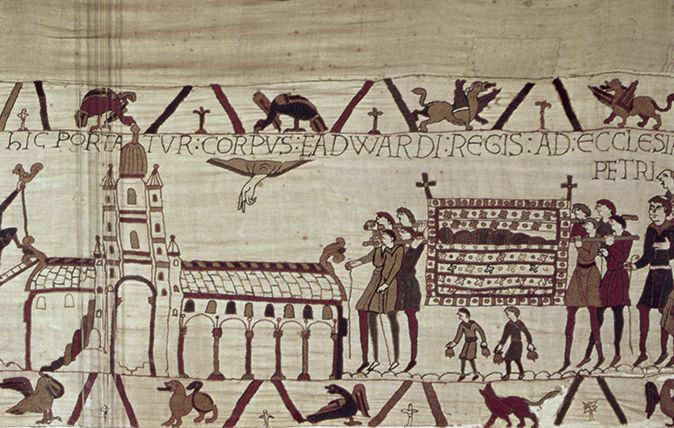 hIC PORTATVR: CORPVS: EADWARDI: REGIS: AD: ECCLESIA
PETRI